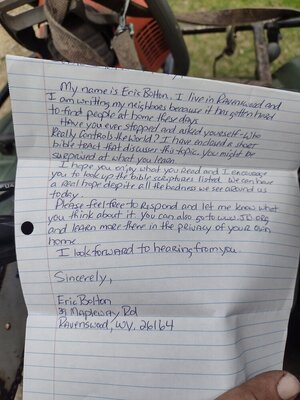 My name is Eric Bolton. I live in Ravenswood and
I am writing my neighbors because it has gotten hard
to find people at home these days.
Have you ever stopped and asked yourself-Who
Really Controls the World? I have enclosed a short
bible tract that discusses this topic. You might be
surprised at what you learn.
I hope you enjoy what you read and I encourage
you to look up the bible scriptures listed. We can have
a real hope despite all the badness we see around us
today.
Please feel free to respond and let me know what
you think about it. You can also go to www.JD.org
and learn more there in the privacy of your own
home.
I look forward to hearing from you.
Sincerely,
Eric Bolton
Mapleway Rd
Ravenswood, WV. 26164